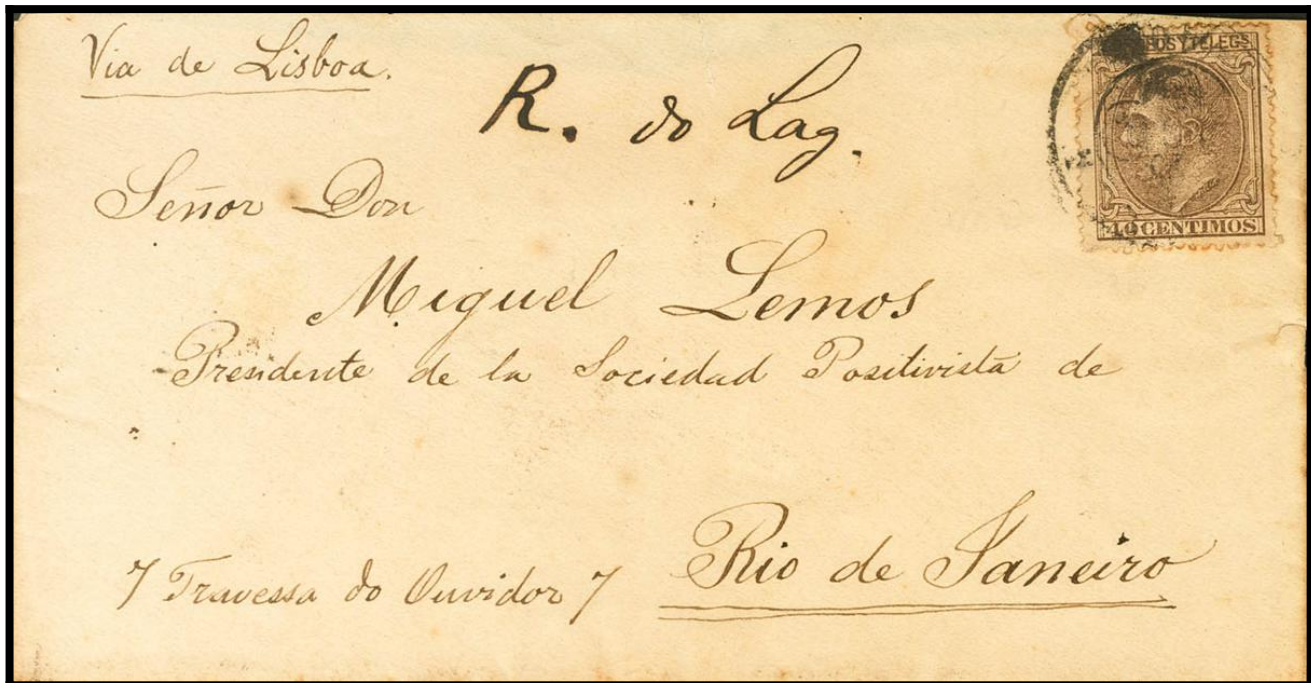 Via de Lisboa.
R. do Lag.
CORREOS Y TELEGS
40 CENTIMOS
Señor Don
Miguel Lemos
Presidente de la Sociedad Positivista de
7 Travessa do Ouvidor 7
Rio de Janeiro